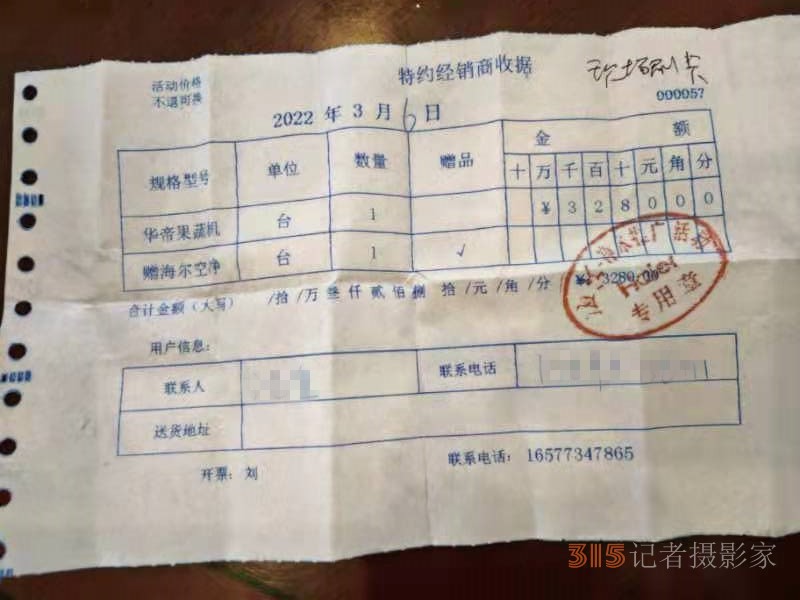 活动价格
不退可换
特约经销商收据
刷卡
000057
2022 年 3 月 6 日
规格型号 单位 数量 赠品 金 额
十 万 千 百 十 元 角 分
华帝果蔬机 台 1 ¥ 3 2 8 0 0 0
赠海尔空净 台 1 ✓
合计金额（大写） /拾 /万 叁 仟 贰 佰 捌 拾 /元 /角 /分 ¥ 3280.00
Haier
专用章
用户信息：
联系人 联系电话
送货地址
开票：刘 联系电话：16577347865
315记者摄影家